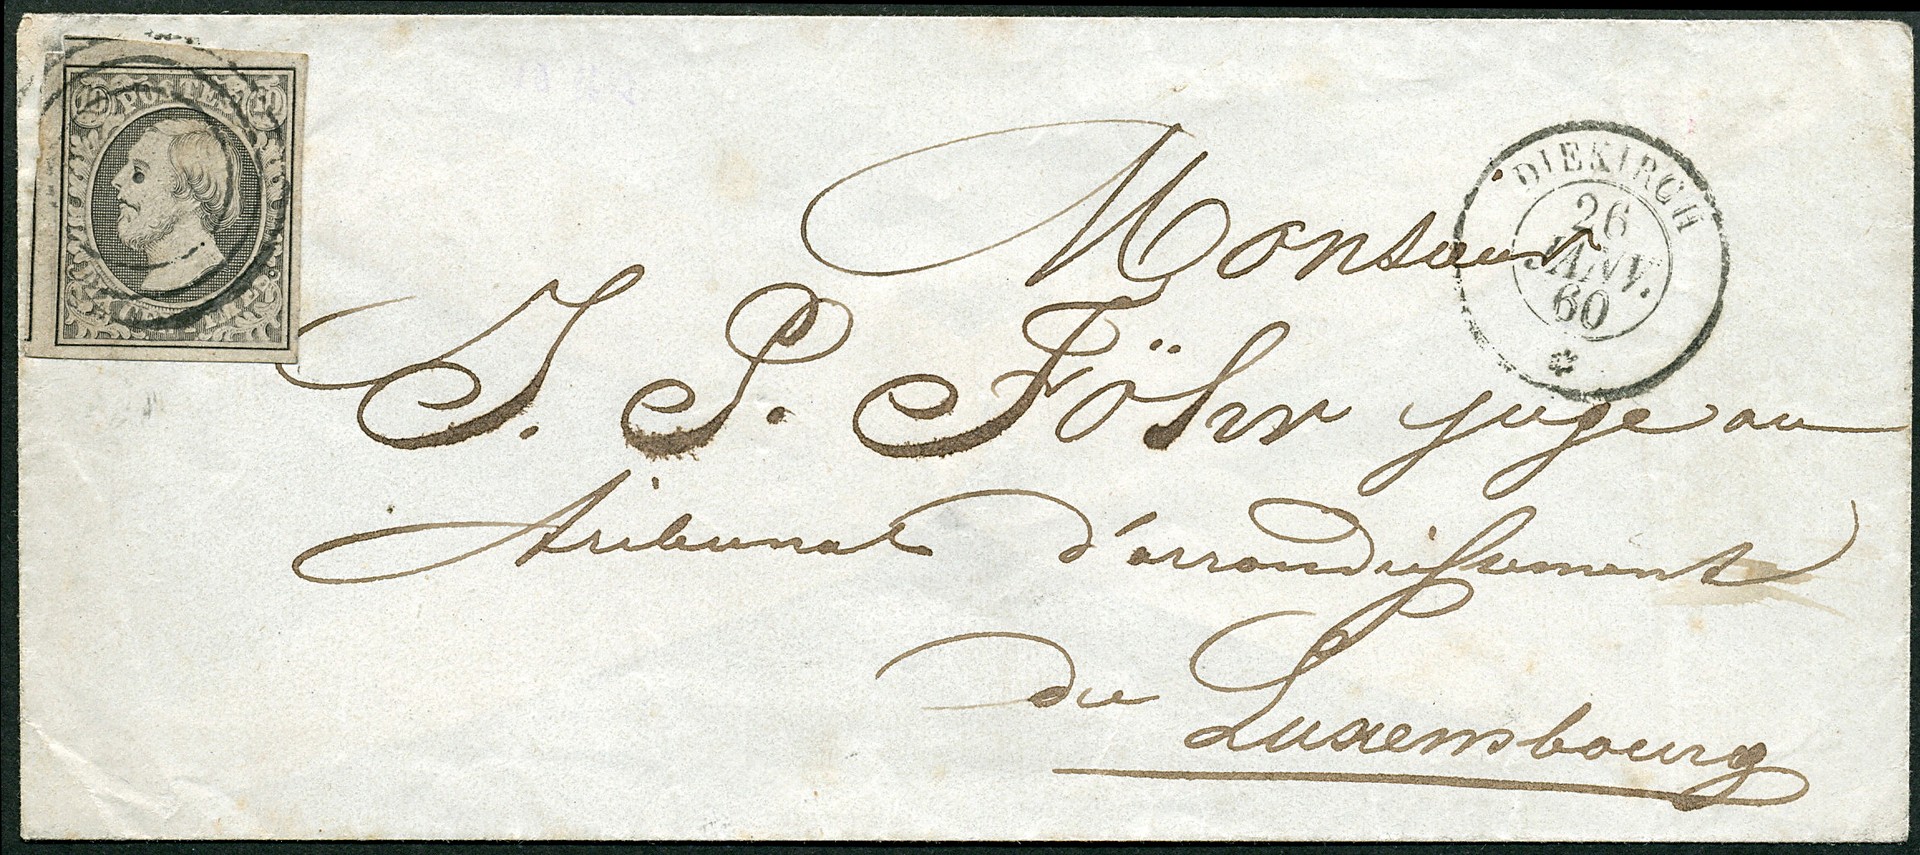 10 POSTES 10
DIX CENTIMES
DIEKIRCH
26
JANV.
60
Monsieur
J. P. Föhr juge au
tribunal d'arrondissement
de Luxembourg